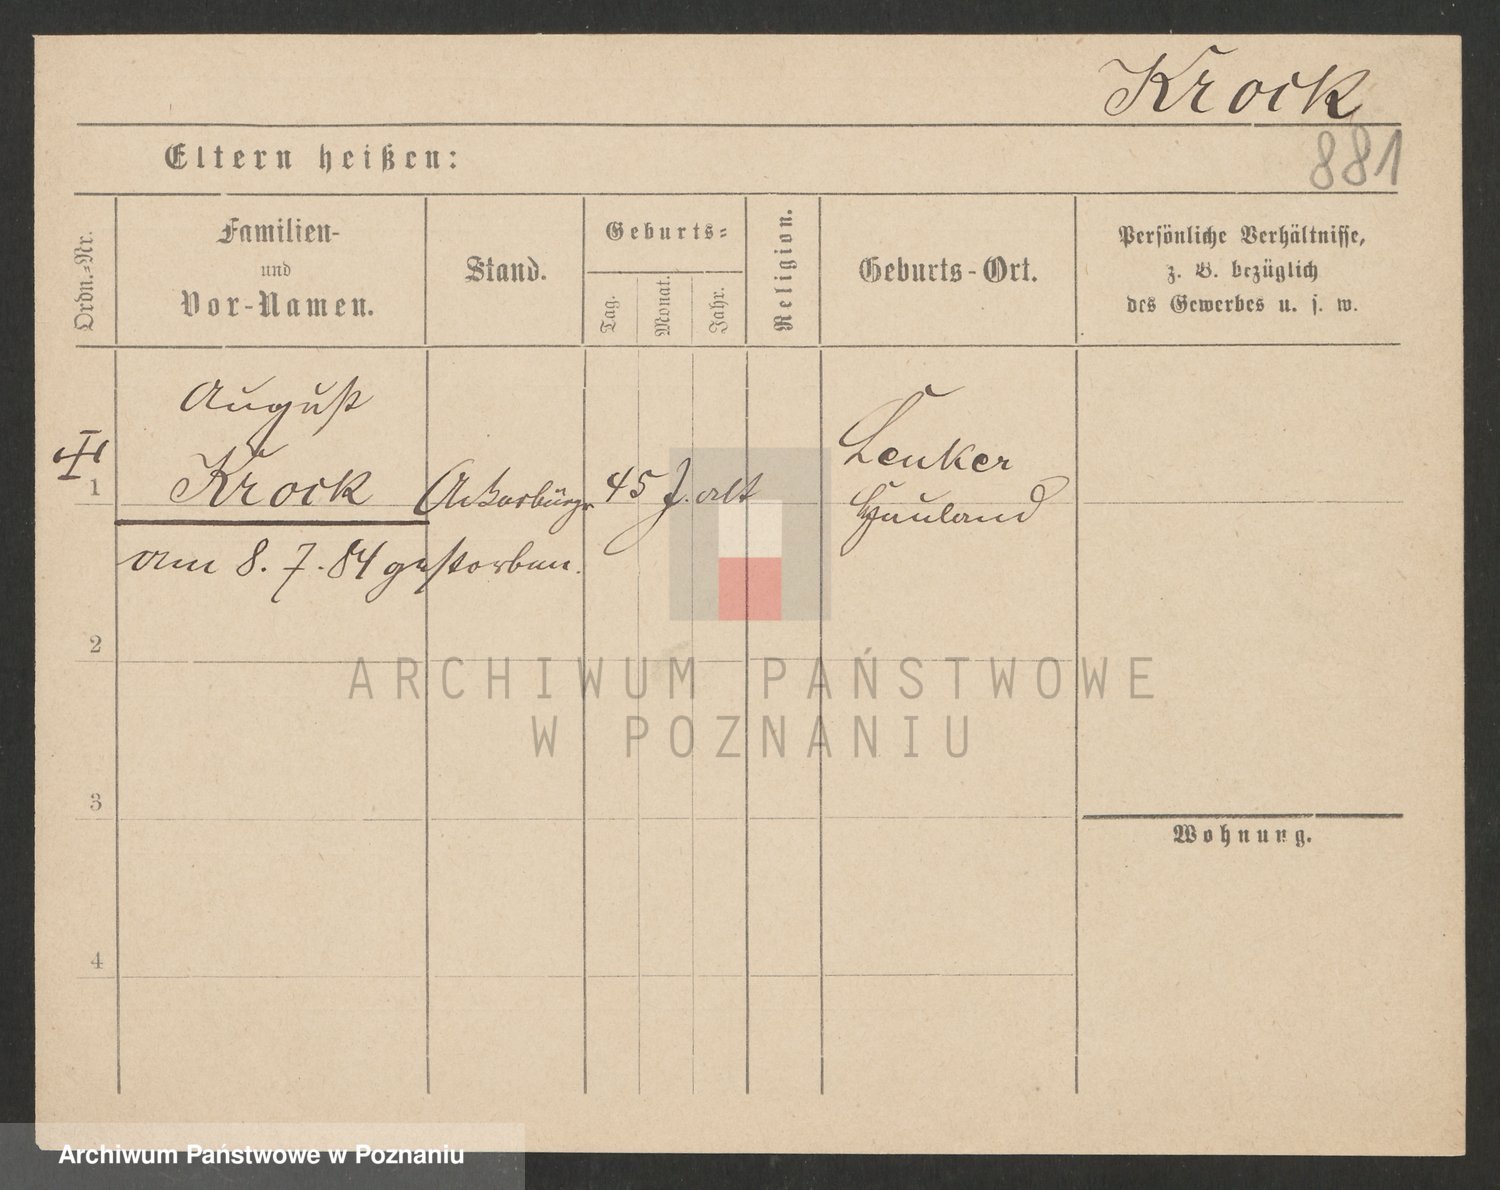 Krock
881
Eltern heißen:
Ordn.-Nr.
Familien-
und
Vor-Namen.
Stand.
Geburts-
Tag.
Monat.
Jahr.
Religion.
Geburts-Ort.
Persönliche Verhältnisse,
z. B. bezüglich
des Gewerbes u. s. w.
1
August
Krock
Ackerbürger
45 J. alt
Lenker
Hauland
am 8. 7. 84 gestorben.
2
3
4
Wohnung.
ARCHIWUM PAŃSTWOWE
W POZNANIU
Archiwum Państwowe w Poznaniu